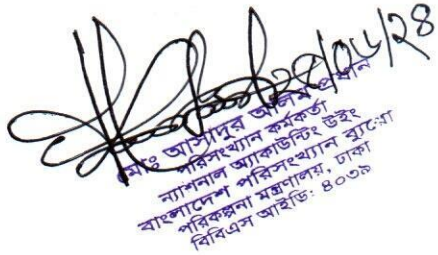 মোঃ আসাদুর আলম প্রধান
পরিসংখ্যান কর্মকর্তা
ন্যাশনাল অ্যাকাউন্টিং উইং
বাংলাদেশ পরিসংখ্যান ব্যুরো
পরিকল্পনা মন্ত্রণালয়, ঢাকা
বিবিএস আইডি: ৪০৩৯